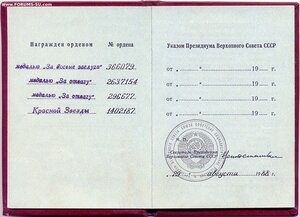 www.FORUMS-SU.com
Награжден орденом
№ ордена
медалью „За боевые заслуги"
366079.
медалью „За отвагу"
2637154
медалью „За отвагу"
296677.
Красной Звезды
1402187.
Указом Президиума Верховного Совета СССР
от „ " 19 г.
от „ " 19 г.
от „ " 19 г.
от „ " 19 г.
Секретарь Президиума
Верховного Совета СССР
августа 1988 г.